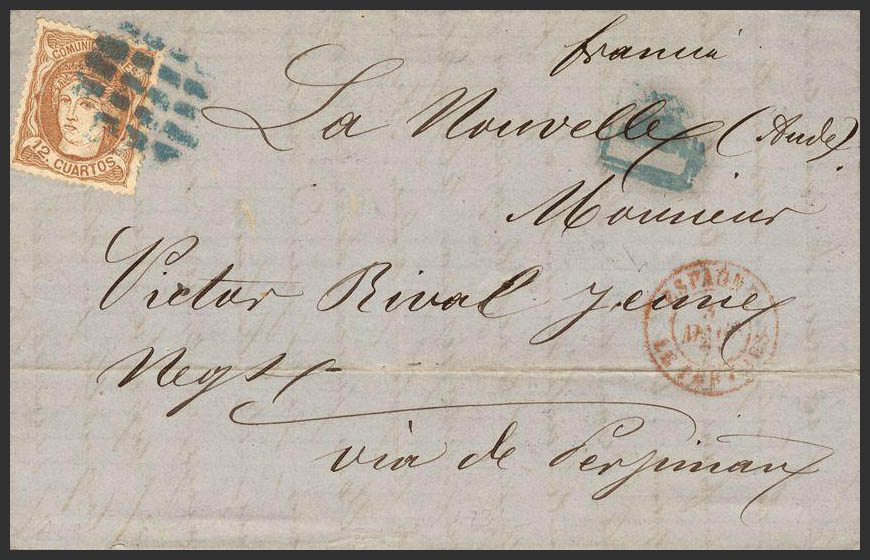 COMUNICACIONES
12. CUARTOS
francia
La Nouvelle (Aude)
Monsieur
Victor Rival Jeune
Negt
via de Perpiñan
ESPAGNE
LE PERTHUS